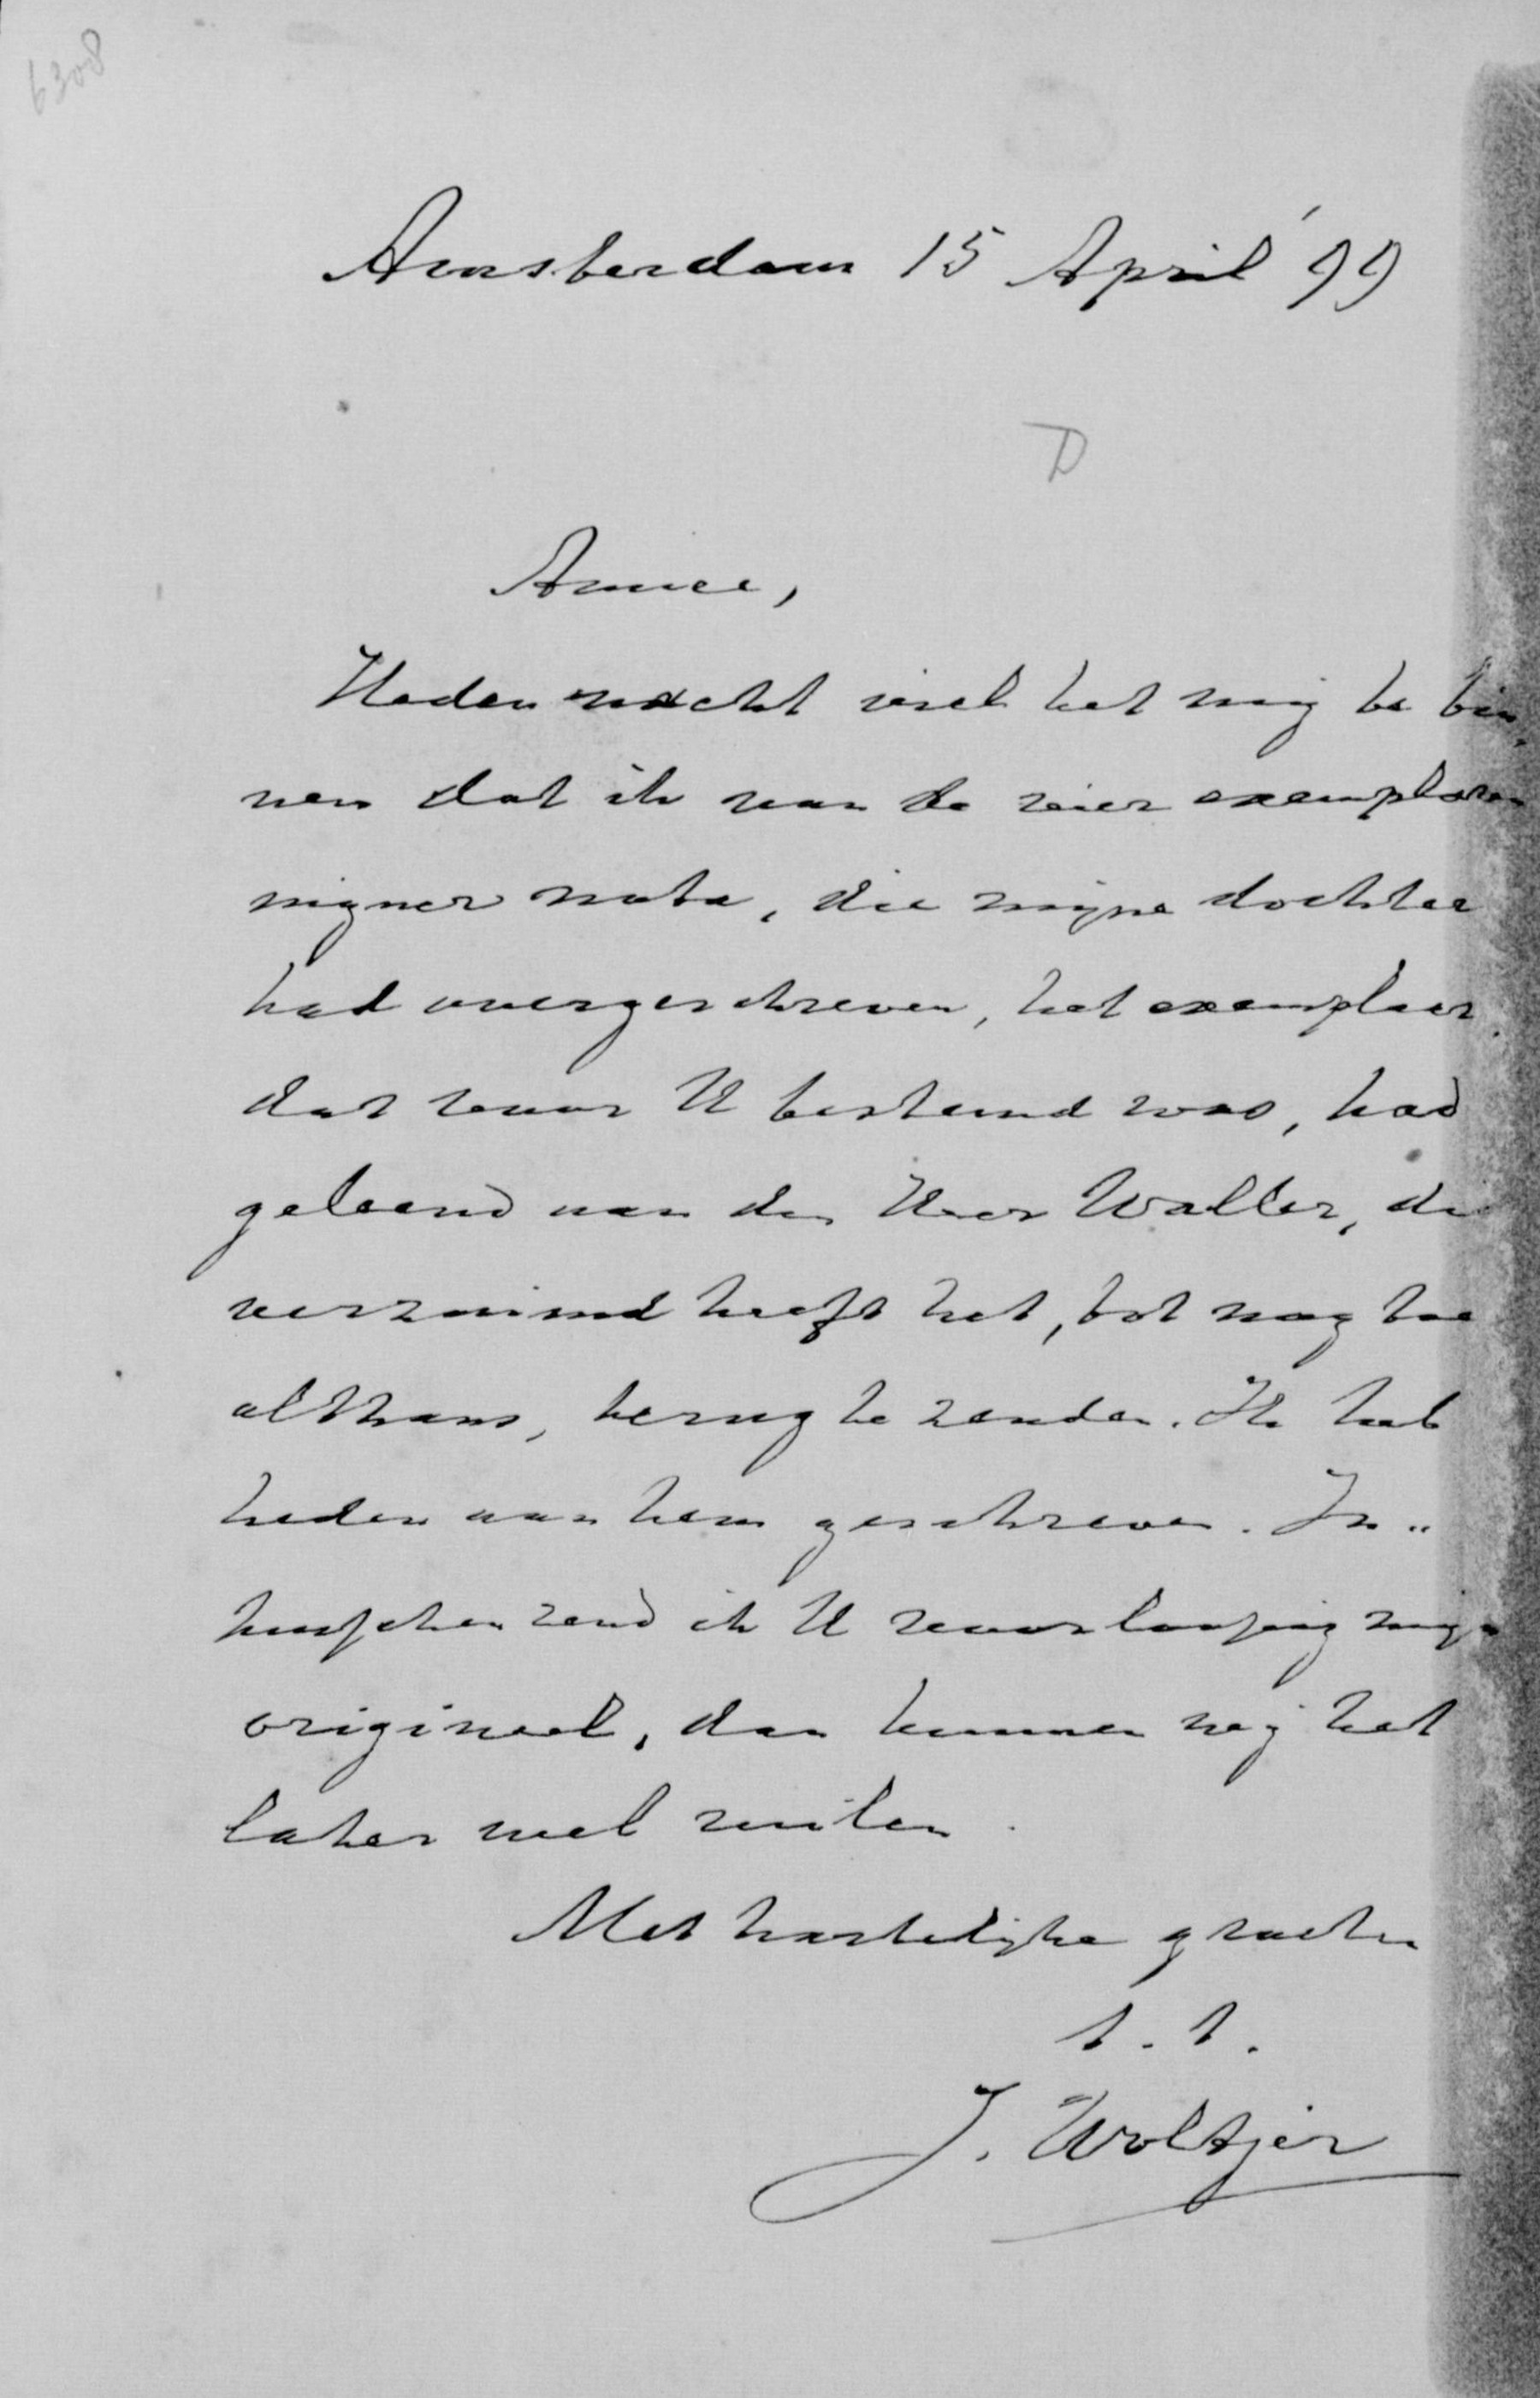 6308
Amsterdam 15 April '99
D
Amice,
Heden nacht viel het mij te bin„
nen dat ik van de vier exemplaren
mijner nota, die mijne dochter
had overgeschreven, het exemplaar
dat voor U bestemd was, had
geleend aan den Heer Waller, die
verzuimd heeft het, tot nog toe
althans, terug te zenden. Ik heb
heden aan hem geschreven. In„
tusschen zend ik U voorloopig mijn
origineel, dan kunnen wij het
later wel ruilen.
Met hartelijke groeten
t. t.
J. Woltjer